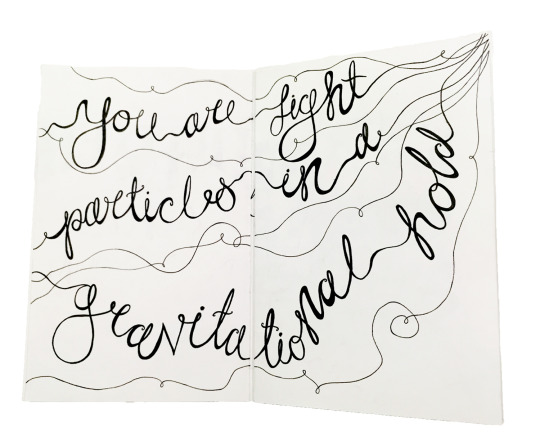 you are light
particles in a
gravitational hold